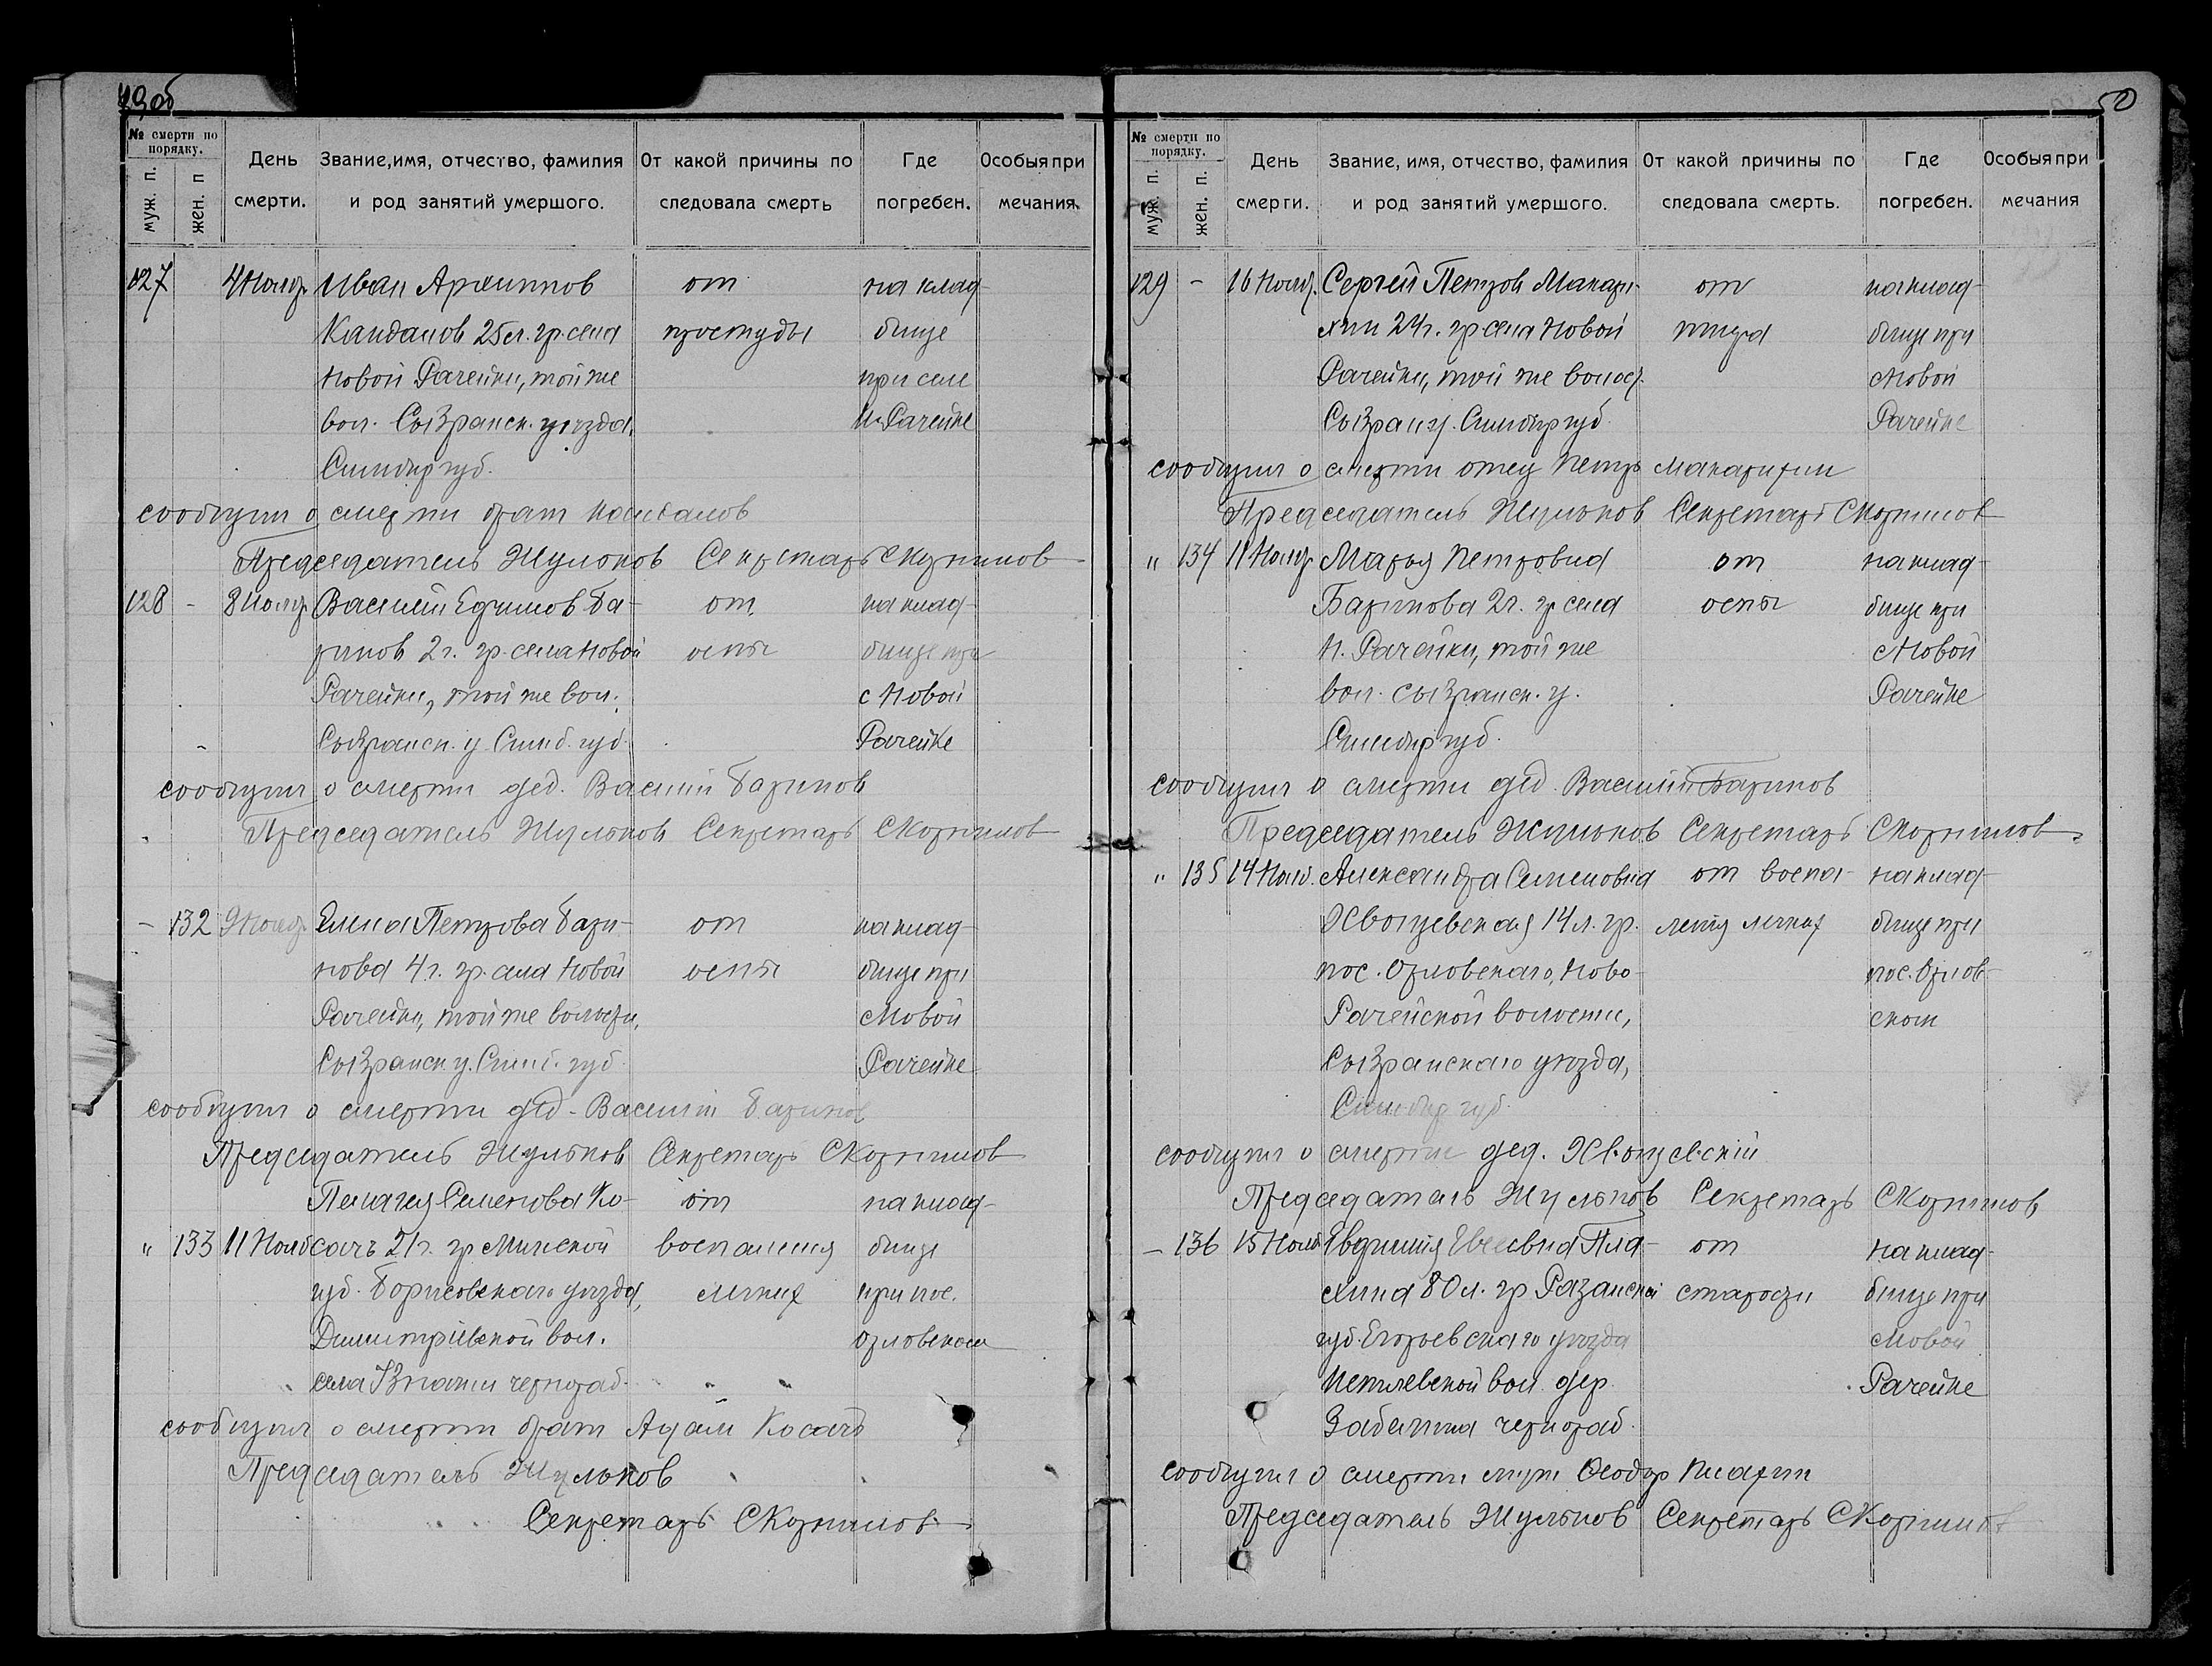 49об
№ смерти по порядку.
муж. п.
жен. п
День смерти.
Звание, имя, отчество, фамилия и род занятий умершого.
От какой причины последовала смерть
Где погребен.
Особыя примечания.
127 4 Нояб. Иван Архиппов от на клад-
Канданов 25 л. гр. села простуды бище
Новой Рачейки, той же при селе
вол. Сызранск. уезда, Н. Рачейке
Симбир губ.
сообщил о смерти брат
Председатель Жульков Секретарь С Корнилов
128 - 8 Нояб. Василий Ефимов Ба- от на клад-
ринов 2 г. гр. села Новой оспы бище при
Рачейки, той же вол. с Новой
Сызранск. у. Симб. губ. Рачейке
сообщил о смерти дед. Василий Баринов
Председатель Жульков Секретарь С Корнилов
- 132 9 Нояб. Елена Петрова Бари- от на клад-
нова 4 г. гр. села Новой оспы бище при
Рачейки, той же волости, с Новой
Сызранск. у. Симб. губ. Рачейке
сообщил о смерти дед - Василий Баринов
Председатель Жульков Секретарь С Корнилов
Пелагея Семенова Ко- от на клад-
" 133 11 Нояб. сачъ 21 г. гр Минской воспаления бище
губ. Борисовскаго уезда, легких при пос.
Димитриевской вол. Орловском
села чернораб.
сообщил о смерти брат Адам Косачъ
Председатель Жульков
Секретарь С Корнилов
50
№ смерти по порядку.
муж. п.
жен. п.
День смерти.
Звание, имя, отчество, фамилия и род занятий умершого.
От какой причины последовала смерть.
Где погребен.
Особыя примечания
129 - 16 Нояб. Сергей Петров Макари- от на клад-
хин 24 г. гр села Новой тифа бище при
Рачейки, той же волос. с Новой
Сызран у. Симбир губ. Рачейке
сообщил о смерти отец Петр Макарихин
Председатель Жульков Секретарь С Корнилов
" 134 11 Нояб. Марья Петровна от на клад-
Баринова 2 г. гр села оспы бище при
Н. Рачейки, той же с Новой
вол. Сызранск. у. Рачейке
Симбир губ.
сообщил о смерти дед. Василий Баринов
Председатель Жульков Секретарь С Корнилов
" 135 14 Нояб. Александра Семеновна от воспа- на клад-
14 л. гр. ления легких бище при
пос. Орловскаго, Ново- пос. Орлов-
Рачейской волости, ском
Сызранскаго уезда,
Симбир губ.
сообщил о смерти дед.
Председатель Жульков Секретарь С Корнилов
- 136 15 Нояб. Евфимия Пла- от на клад-
хина 80 л. гр Рязанской старости бище при
губ. Егорьевскаго уезда с Новой
вол. дер. Рачейке
чернораб.
сообщил о смерти муж Феодор
Председатель Жульков Секретарь С Корнилов